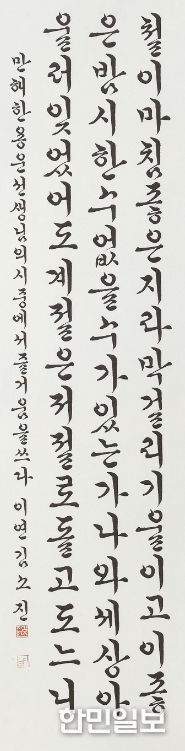 철이마침좋은지라막걸리기울이고이좋
은밤시한수없을수가있는가나와세상아
울러잊었어도계절은저절로돌고도느니
만해한용운선생님의시중에서즐거움을쓰라 이연김노진
한민일보